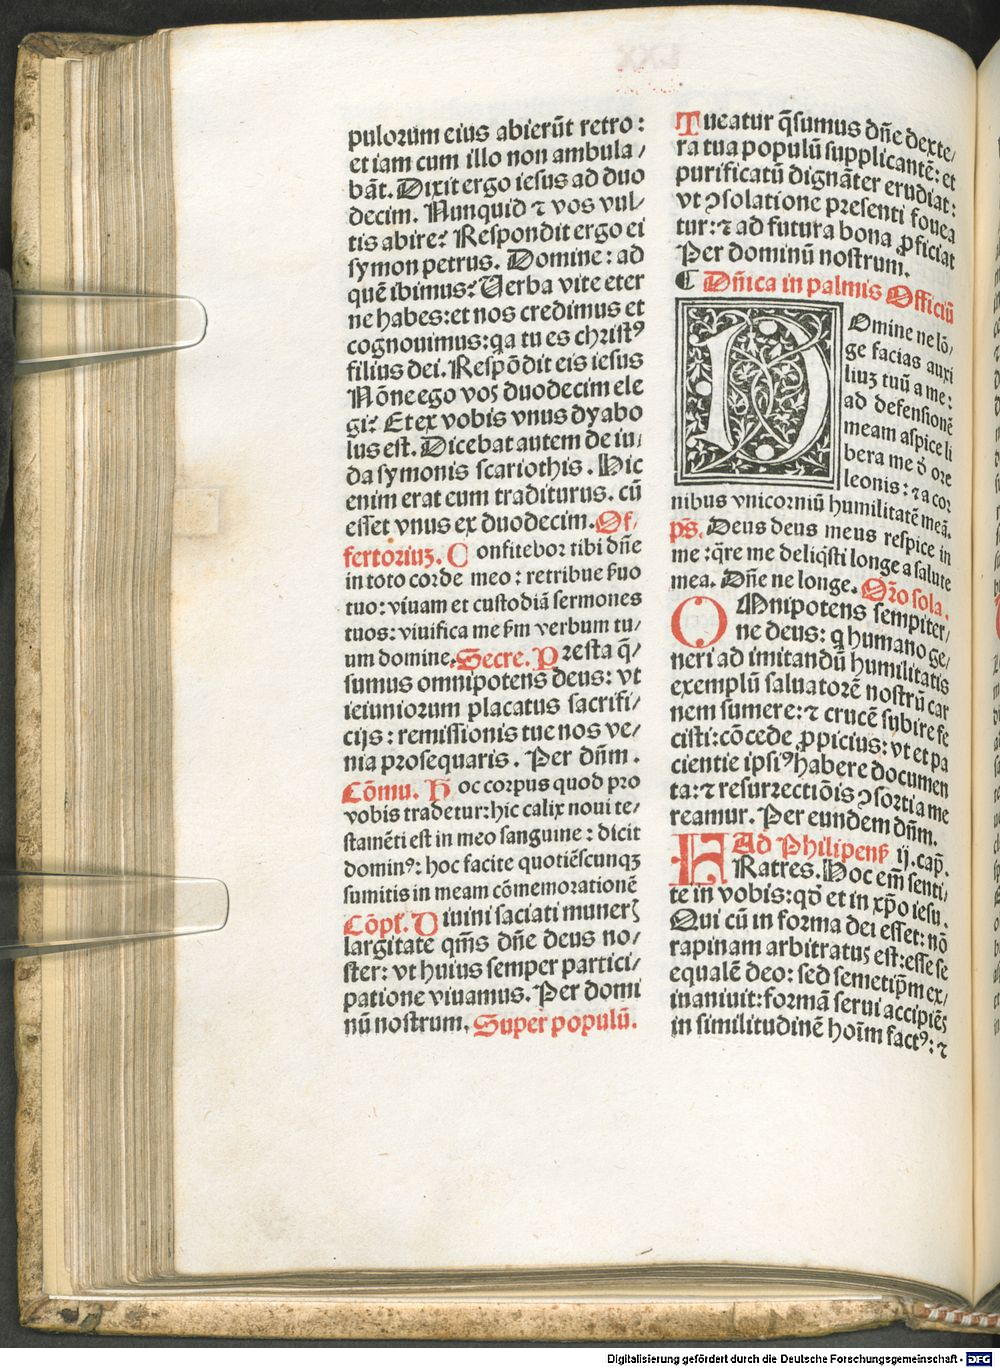 pulorum eius abierūt retro:
et iam cum illo non ambula/
bāt. Dixit ergo iesus ad duo
decim. Nunquid ⁊ vos vul/
tis abire? Respondit ergo ei
symon petrus. Domine: ad
quē ibimus? Verba vite eter
ne habes: et nos credimus et
cognouimus: qa tu es christꝰ
filius dei. Respōdit eis iesus
Nōne ego vos duodecim ele
gi? Et ex vobis vnus dyabo
lus est. Dicebat autem de iu/
da symonis scariothis. Hic
enim erat eum traditurus. cū
esset vnus ex duodecim. Of/
fertoriuꝫ. Confitebor tibi dn̄e
in toto corde meo: retribue ẜuo
tuo: viuam et custodiā sermones
tuos: viuifica me ẜm verbum tu/
um domine. Secre. Presta q̄/
sumus omnipotens deus: vt
ieiuniorum placatus sacrifi/
cijs: remissionis tue nos ve/
nia prosequaris. Per dn̄m.
Cōmu. Hoc corpus quod pro
vobis tradetur: hic calix noui te/
stamēti est in meo sanguine: dicit
dominꝰ: hoc facite quotiēscunqꝫ
sumitis in meam cōmemorationē
Cōpl. Diuini saciati munerꝭ
largitate qm̄s dn̄e deus no/
ster: vt huius semper partici/
patione viuamus. Per domi
nū nostrum. Super populū.
Tueatur q̄sumus dn̄e dexte/
ra tua populū supplicantē: et
purificatū dignāter erudiat:
vt ꝯsolatione presenti fouea
tur: ⁊ ad futura bona ꝓficiat
Per dominū nostrum.
¶ Dn̄ica in palmis Officiū
Domine ne lō/
ge facias auxi
liuꝫ tuū a me:
ad defensionē
meam aspice li
bera me d̄ ore
leonis: ⁊ a cor
nibus vnicorniū humilitatē meā.
ps̄. Deus deus meus respice in
me: q̄re me deliq̄sti longe a salute
mea. Dn̄e ne longe. Or̄o sola.
OMnipotens sempiter/
ne deus: q humano ge/
neri ad imitandū humilitatis
exemplū saluatorē nostrū car
nem sumere: ⁊ crucē subire fe
cisti: cōcede ꝓpicius: vt et pa
cientie ipsiꝰ habere documen
ta: ⁊ resurrectiōis ꝯsortia me
reamur. Per eundem dn̄m.
Ad Philipenẜ ij. cap̄.
FRatres. Hoc em̄ senti/
te in vobis: qd̄ et in xp̄o iesu.
Qui cū in forma dei esset: nō
rapinam arbitratus est: esse se
equalē deo: sed semetip̄m ex/
inaniuit: formā serui accipiēs
in similitudinē hoīm factꝰ: ⁊
Digitalisierung gefördert durch die Deutsche Forschungsgemeinschaft - DFG